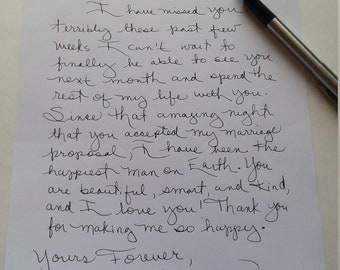 I have missed you
terribly these past few
weeks. I can't wait to
finally be able to see you
next month and spend the
rest of my life with you.
Since that amazing night
that you accepted my marriage
proposal, I have been the
happiest man on Earth. You
are beautiful, smart, and kind,
and I love you! Thank you
for making me so happy.
Yours Forever,